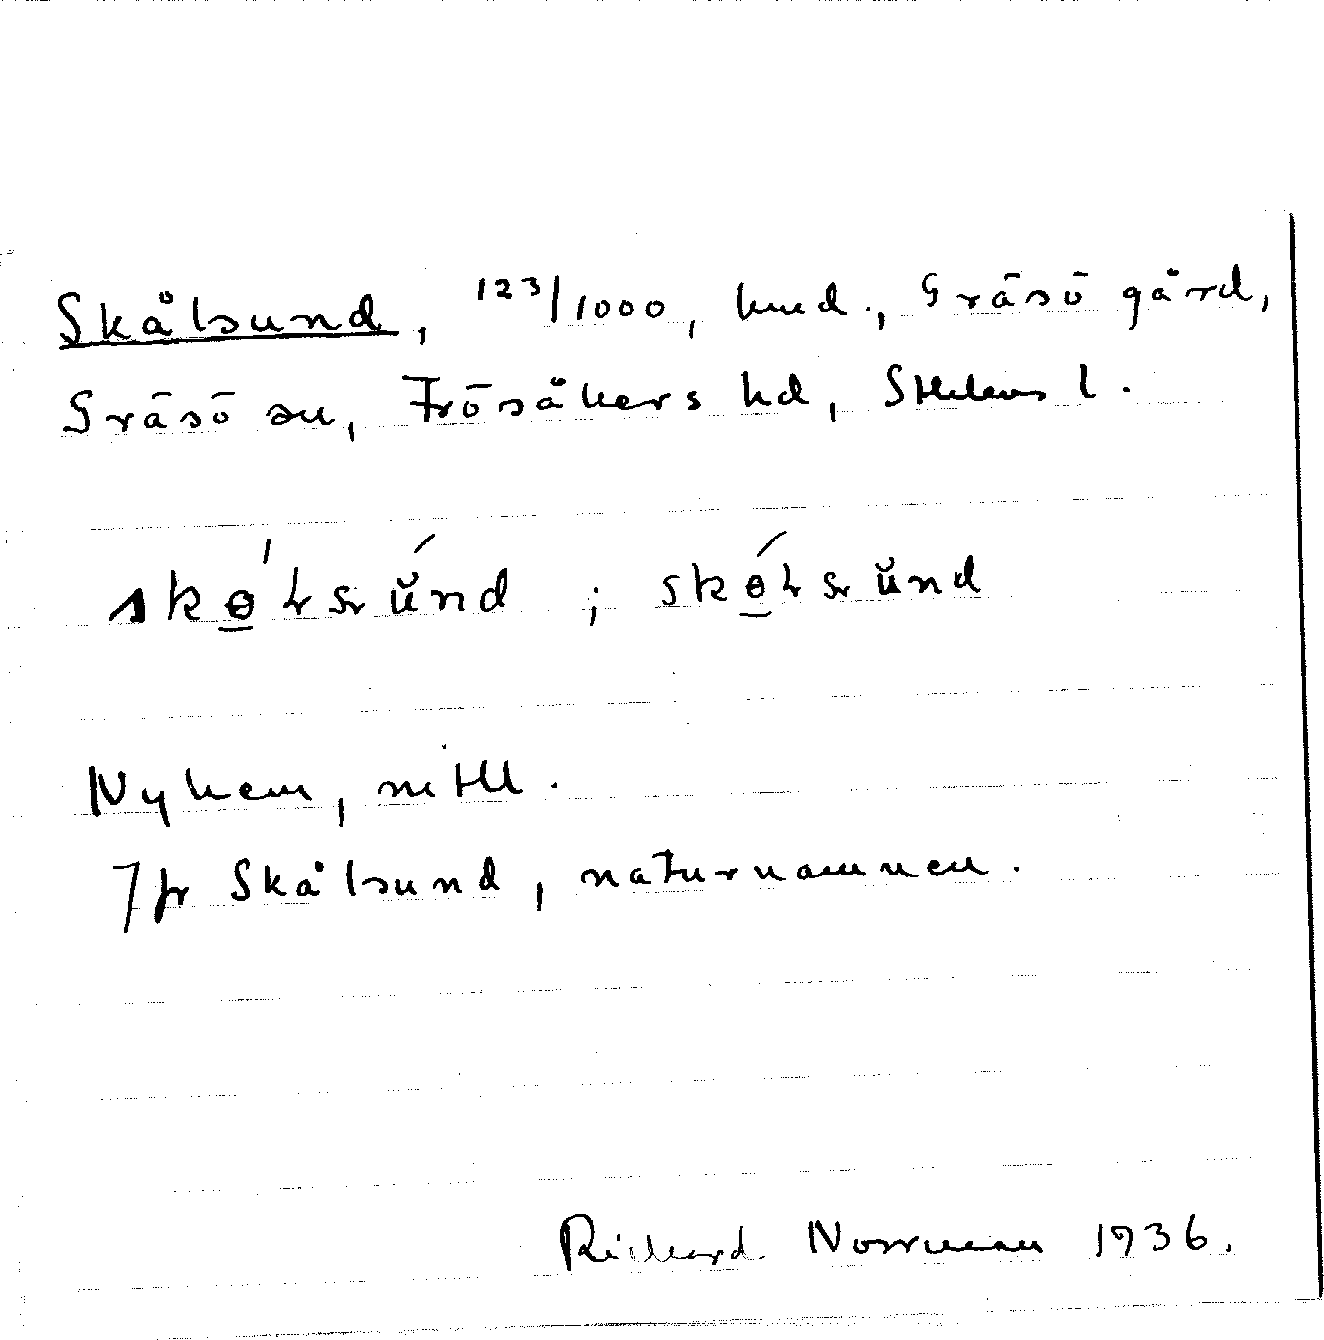 Skålsund, 123/1000, hmd., Gräsö gård,
Gräsö sn, Frösåkers hd, Sthlms l.
Nyhem, nitll.
Jfr Skålsund, naturnamnen.
Richard Norrman 1936.